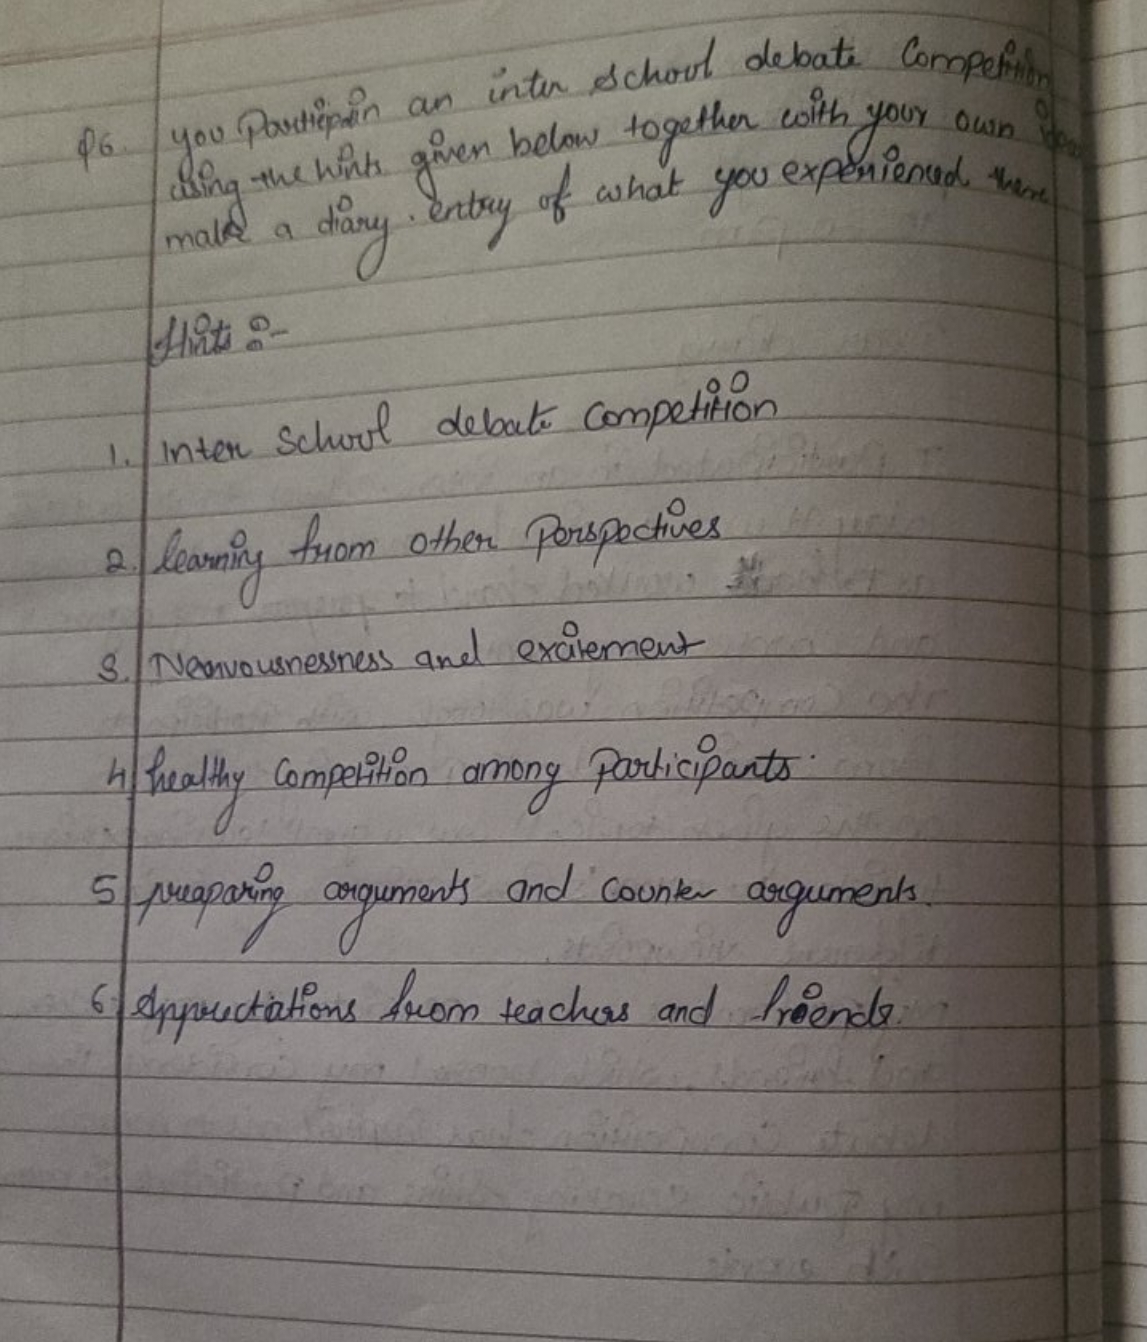 Q6. you Participain an inter school debate Competition
using the hints given below together with your own
make a diary entry of what you experienced there
Hints :-
1. Inter School debate competition
2. learning from other Perspectives
3. Nearvousnessness and excitement
4 healthy competition among Participants.
5 preaparing arguments and counter arguments.
6 Appructations from teachers and friends.